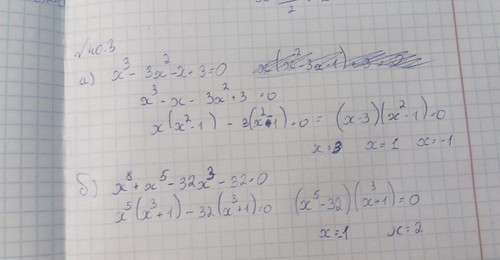 №40.3
а) x³ - 3x² - x + 3 = 0
x³ - x - 3x² + 3 = 0
x(x² - 1) - 3(x² - 1) = 0 = (x - 3)(x² - 1) = 0
x = 3 x = 1 x = -1
б) x⁸ + x⁵ - 32x³ - 32 = 0
x⁵(x³ + 1) - 32(x³ + 1) = 0 (x⁵ - 32)(x³ + 1) = 0
x = -1 x = 2